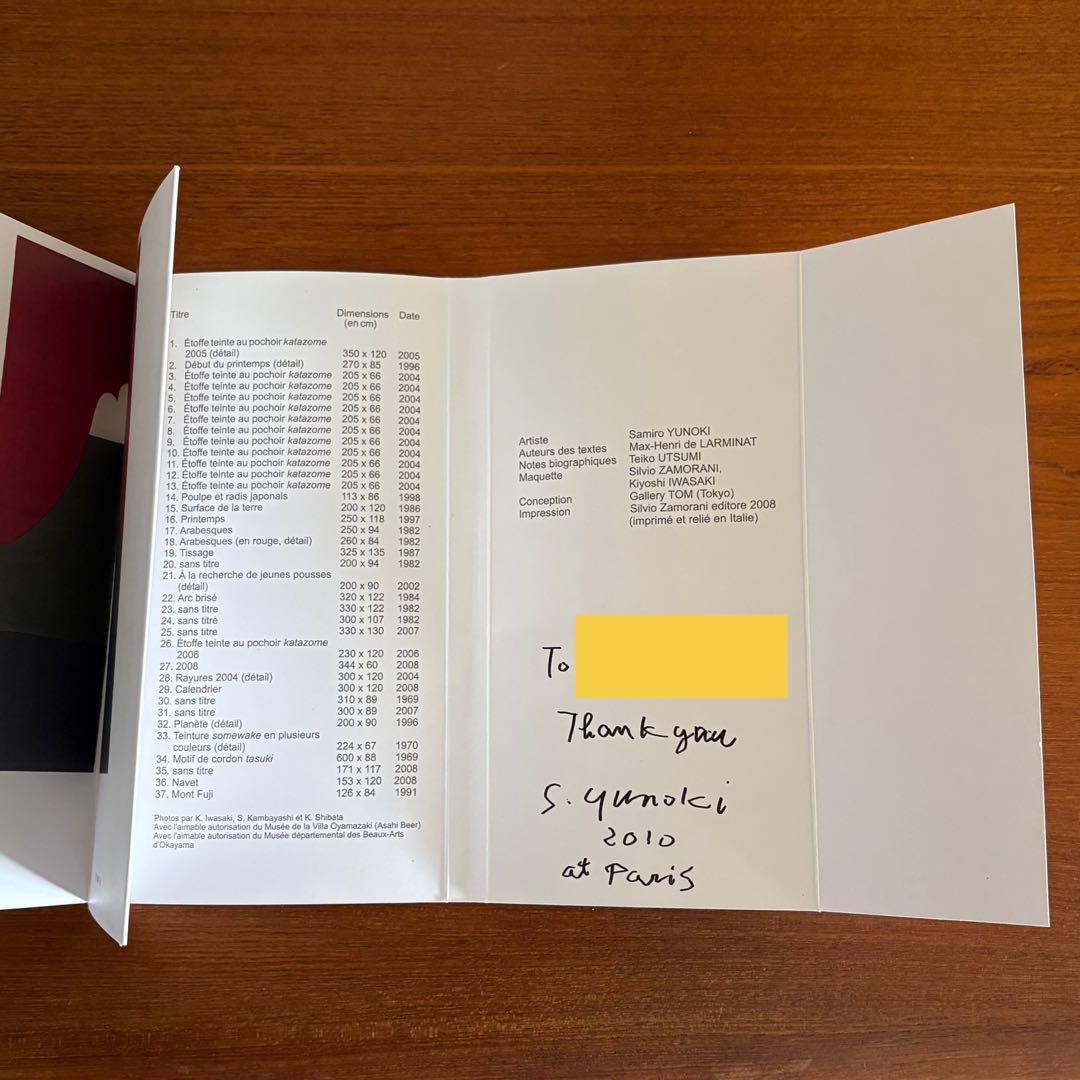 Titre Dimensions Date
(en cm)
1. Étoffe teinte au pochoir katazome
2005 (détail) 350 x 120 2005
2. Début du printemps (détail) 270 x 85 1996
3. Étoffe teinte au pochoir katazome 205 x 66 2004
4. Étoffe teinte au pochoir katazome 205 x 66 2004
5. Étoffe teinte au pochoir katazome 205 x 66 2004
6. Étoffe teinte au pochoir katazome 205 x 66 2004
7. Étoffe teinte au pochoir katazome 205 x 66 2004
8. Étoffe teinte au pochoir katazome 205 x 66 2004
9. Étoffe teinte au pochoir katazome 205 x 66 2004
10. Étoffe teinte au pochoir katazome 205 x 66 2004
11. Étoffe teinte au pochoir katazome 205 x 66 2004
12. Étoffe teinte au pochoir katazome 205 x 66 2004
13. Étoffe teinte au pochoir katazome 205 x 66 2004
14. Poulpe et radis japonais 113 x 86 1998
15. Surface de la terre 200 x 120 1986
16. Printemps 250 x 118 1997
17. Arabesques 250 x 94 1982
18. Arabesques (en rouge, détail) 260 x 84 1982
19. Tissage 325 x 135 1987
20. sans titre 200 x 94 1982
21. À la recherche de jeunes pousses
(détail) 200 x 90 2002
22. Arc brisé 320 x 122 1984
23. sans titre 330 x 122 1982
24. sans titre 300 x 107 1982
25. sans titre 330 x 130 2007
26. Étoffe teinte au pochoir katazome
2006 230 x 120 2006
27. 2008 344 x 60 2008
28. Rayures 2004 (détail) 300 x 120 2004
29. Calendrier 300 x 120 2008
30. sans titre 310 x 89 1969
31. sans titre 300 x 89 2007
32. Planète (détail) 200 x 90 1996
33. Teinture somewake en plusieurs
couleurs (détail) 224 x 67 1970
34. Motif de cordon tasuki 600 x 88 1969
35. sans titre 171 x 117 2008
36. Navet 153 x 120 2008
37. Mont Fuji 126 x 84 1991
Photos par K. Iwasaki, S. Kambayashi et K. Shibata
Avec l'aimable autorisation du Musée de la Villa Oyamazaki (Asahi Beer)
Avec l'aimable autorisation du Musée départemental des Beaux-Arts
d'Okayama
Artiste Samiro YUNOKI
Auteurs des textes Max-Henri de LARMINAT
Notes biographiques Teiko UTSUMI
Maquette Silvio ZAMORANI,
Kiyoshi IWASAKI
Conception Gallery TOM (Tokyo)
Impression Silvio Zamorani editore 2008
(imprimé et relié en Italie)
To
Thank you
S. Yunoki
2010
at Paris